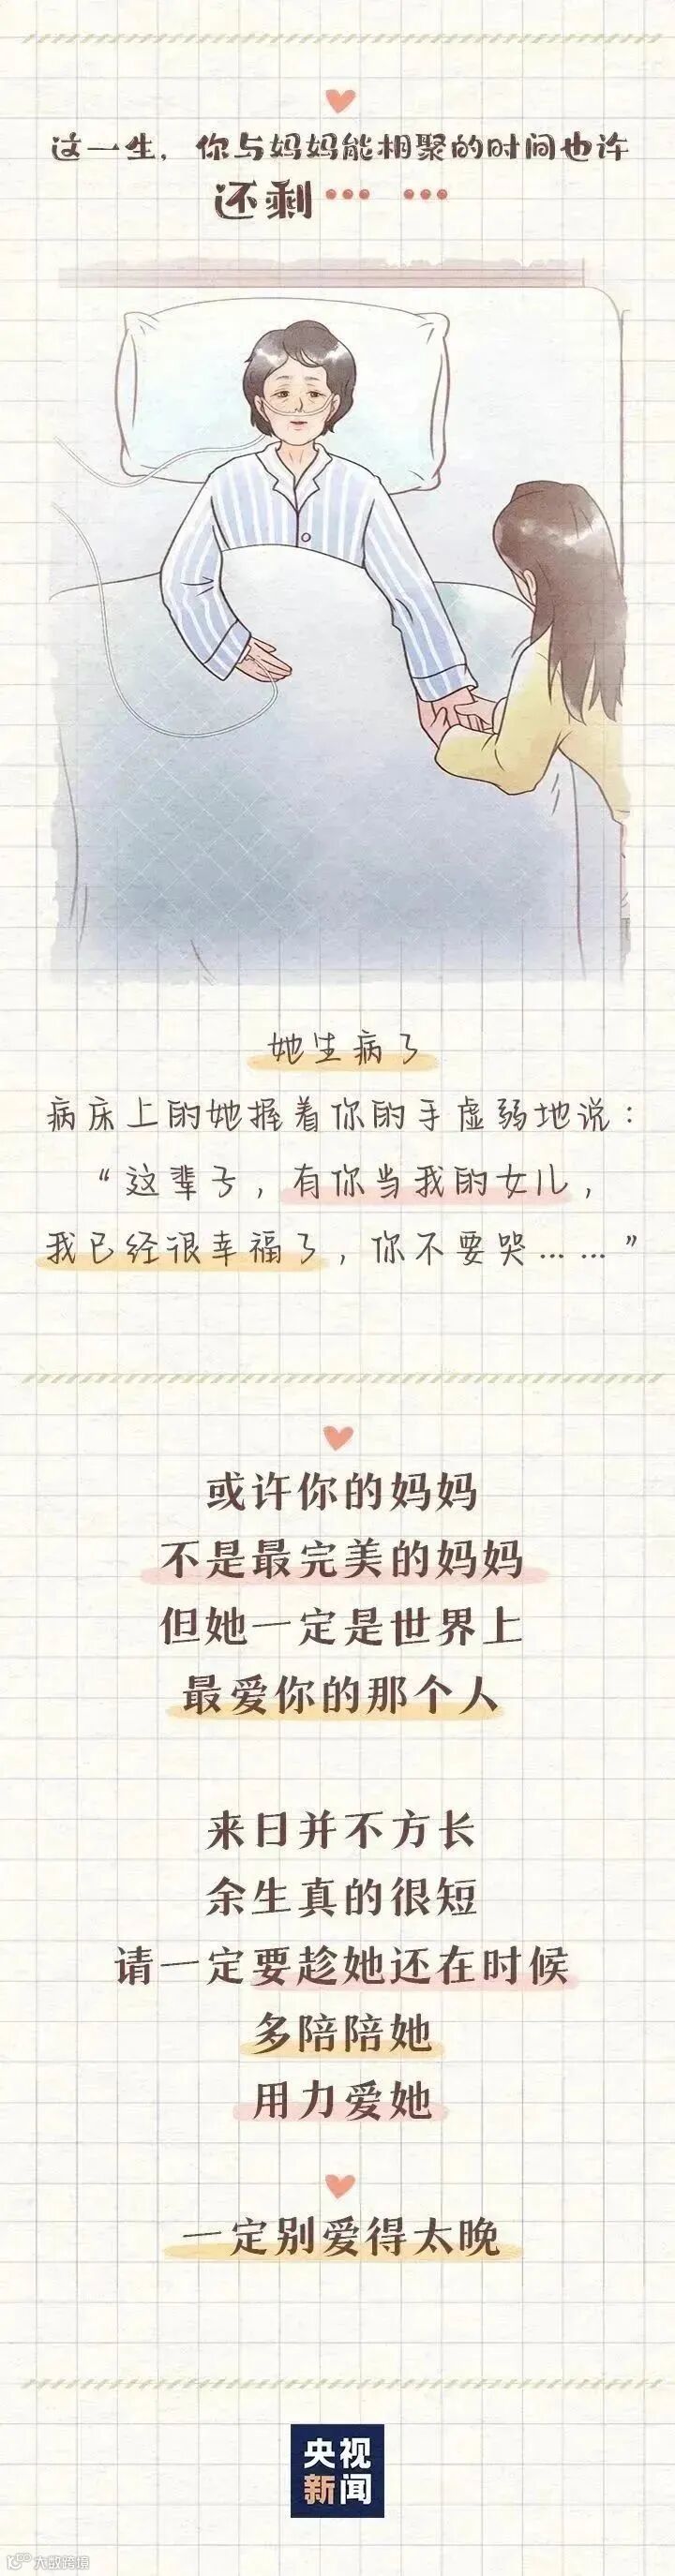 这一生，你与妈妈能相聚的时间也许
还剩… …
她生病了
病床上的她握着你的手虚弱地说：
“这辈子，有你当我的女儿，
我已经很幸福了，你不要哭……”
或许你的妈妈
不是最完美的妈妈
但她一定是世界上
最爱你的那个人
来日并不方长
余生真的很短
请一定要趁她还在时候
多陪陪她
用力爱她
一定别爱得太晚
央视
新闻
大数跨境